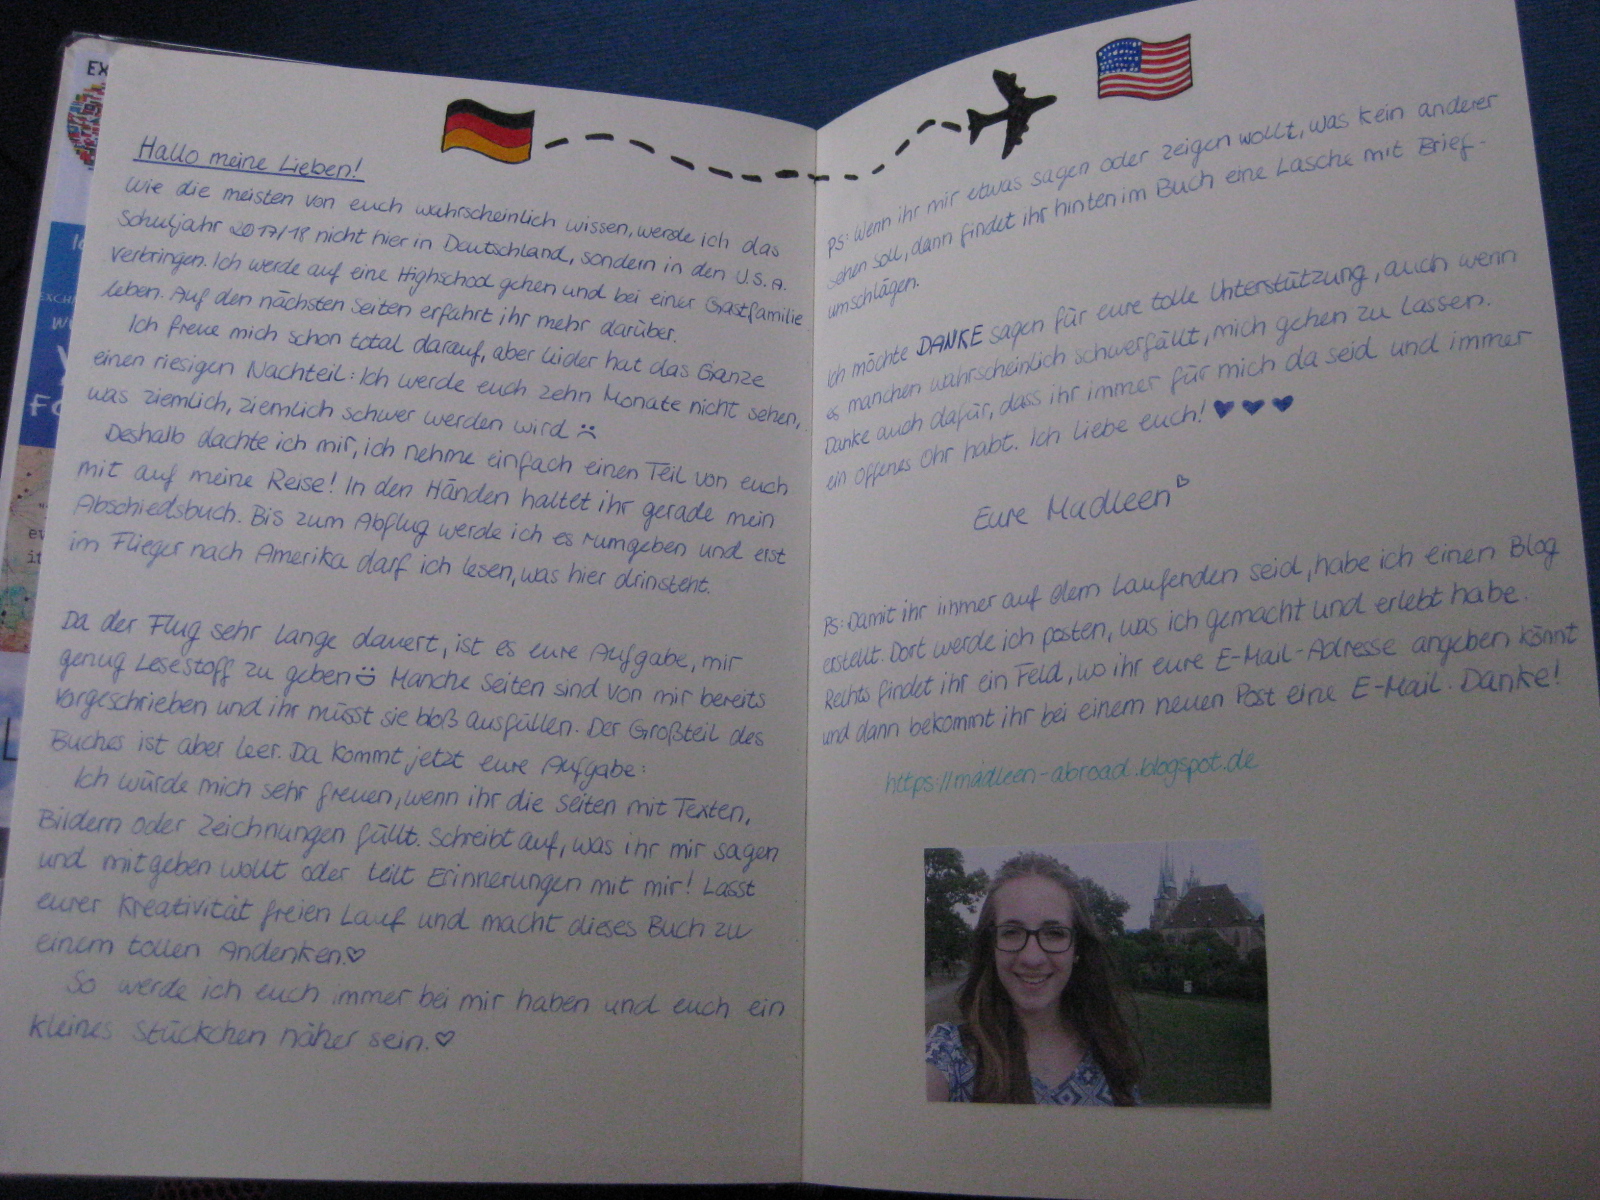 EX
Hallo meine Lieben!
Wie die meisten von euch wahrscheinlich wissen, werde ich das
Schuljahr 2017/18 nicht hier in Deutschland, sondern in den U.S.A.
verbringen. Ich werde auf eine Highschool gehen und bei einer Gastfamilie
leben. Auf den nächsten Seiten erfahrt ihr mehr darüber.
Ich freue mich schon total darauf, aber leider hat das Ganze
einen riesigen Nachteil: Ich werde euch zehn Monate nicht sehen,
was ziemlich, ziemlich schwer werden wird ☹
Deshalb dachte ich mir, ich nehme einfach einen Teil von euch
mit auf meine Reise! In den Händen haltet ihr gerade mein
Abschiedsbuch. Bis zum Abflug werde ich es rumgeben und erst
im Flieger nach Amerika darf ich lesen, was hier drinsteht.
Da der Flug sehr lange dauert, ist es eure Aufgabe, mir
genug Lesestoff zu geben ☺ Manche Seiten sind von mir bereits
vorgeschrieben und ihr müsst sie bloß ausfüllen. Der Großteil des
Buches ist aber leer. Da kommt jetzt eure Aufgabe:
Ich würde mich sehr freuen, wenn ihr die Seiten mit Texten,
Bildern oder Zeichnungen füllt. Schreibt auf, was ihr mir sagen
und mitgeben wollt oder teilt Erinnerungen mit mir! Lasst
eurer Kreativität freien Lauf und macht dieses Buch zu
einem tollen Andenken.♡
So werde ich euch immer bei mir haben und euch ein
kleines Stückchen näher sein.♡
PS: Wenn ihr mir etwas sagen oder zeigen wollt, was kein anderer
sehen soll, dann findet ihr hinten im Buch eine Lasche mit Brief-
umschlägen.
Ich möchte DANKE sagen für eure tolle Unterstützung, auch wenn
es manchen wahrscheinlich schwerfällt, mich gehen zu lassen.
Danke auch dafür, dass ihr immer für mich da seid und immer
ein offenes Ohr habt. Ich liebe euch! ♥ ♥ ♥
Eure Madleen♡
PS: Damit ihr immer auf dem Laufenden seid, habe ich einen Blog
erstellt. Dort werde ich posten, was ich gemacht und erlebt habe.
Rechts findet ihr ein Feld, wo ihr eure E-Mail-Adresse angeben könnt
und dann bekommt ihr bei einem neuen Post eine E-Mail. Danke!
https://madleen-abroad.blogspot.de